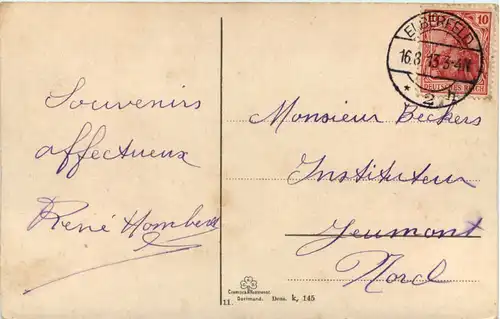 ELBERFELD
16.8.13.3-4N
* 2 h
10
DEUTSCHES REICH
Souvenirs
affectueux
René
Monsieur Beckers
Instituteur
Jeumont
Nord
Dortmund. Dess. k, 145
11.